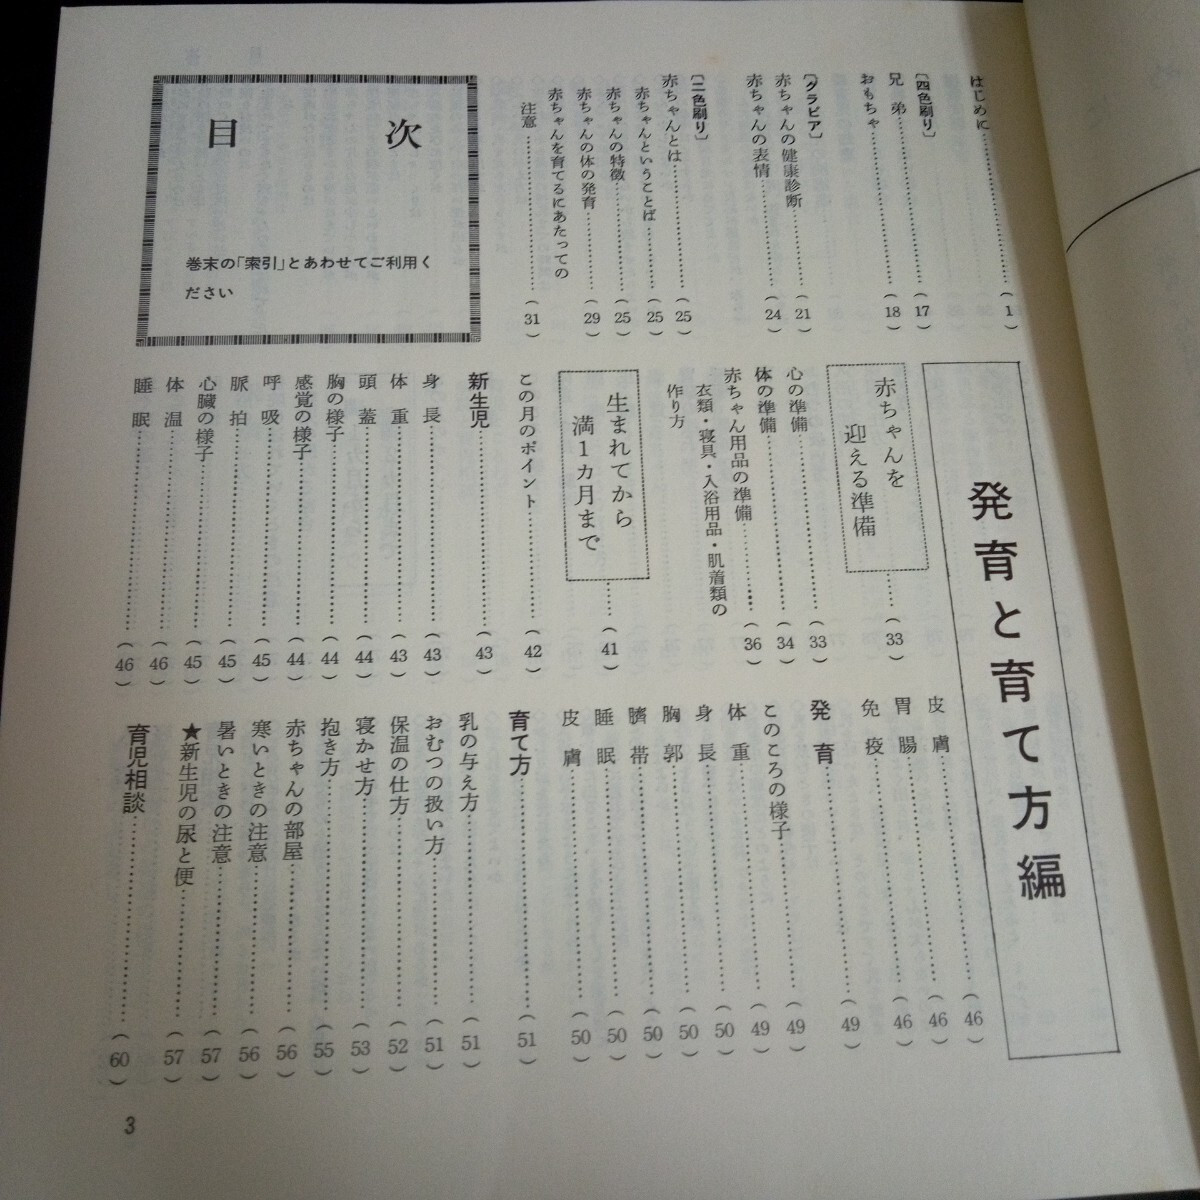 目次
巻末の「索引」とあわせてご利用く
ださい
はじめに……(1)
〔四色刷り〕……(17)
兄弟……(18)
おもちゃ
〔グラビア〕
赤ちゃんの健康診断……(21)
赤ちゃんの表情……(24)
〔二色刷り〕
赤ちゃんとは……(25)
赤ちゃんということば……(25)
赤ちゃんの特徴……(25)
赤ちゃんの体の発育……(29)
赤ちゃんを育てるにあたっての
注意……(31)
発育と育て方編
赤ちゃんを
迎える準備……(33)
心の準備……(33)
体の準備……(34)
赤ちゃん用品の準備……(36)
衣類・寝具・入浴用品・肌着類の
作り方
生まれてから
満1カ月まで……(41)
この月のポイント……(42)
新生児……(43)
身長……(43)
体重……(43)
頭蓋……(44)
胸の様子……(44)
感覚の様子……(44)
呼吸……(45)
脈拍……(45)
心臓の様子……(45)
体温……(46)
睡眠……(46)
皮膚……(46)
胃腸……(46)
免疫……(46)
発育……(49)
このころの様子……(49)
体重……(49)
身長……(50)
胸郭……(50)
臍帯……(50)
睡眠……(50)
皮膚……(50)
育て方……(51)
乳の与え方……(51)
おむつの扱い方……(51)
保温の仕方……(52)
寝かせ方……(53)
抱き方……(55)
赤ちゃんの部屋……(56)
寒いときの注意……(56)
暑いときの注意……(57)
★新生児の尿と便……(57)
育児相談……(60)
3